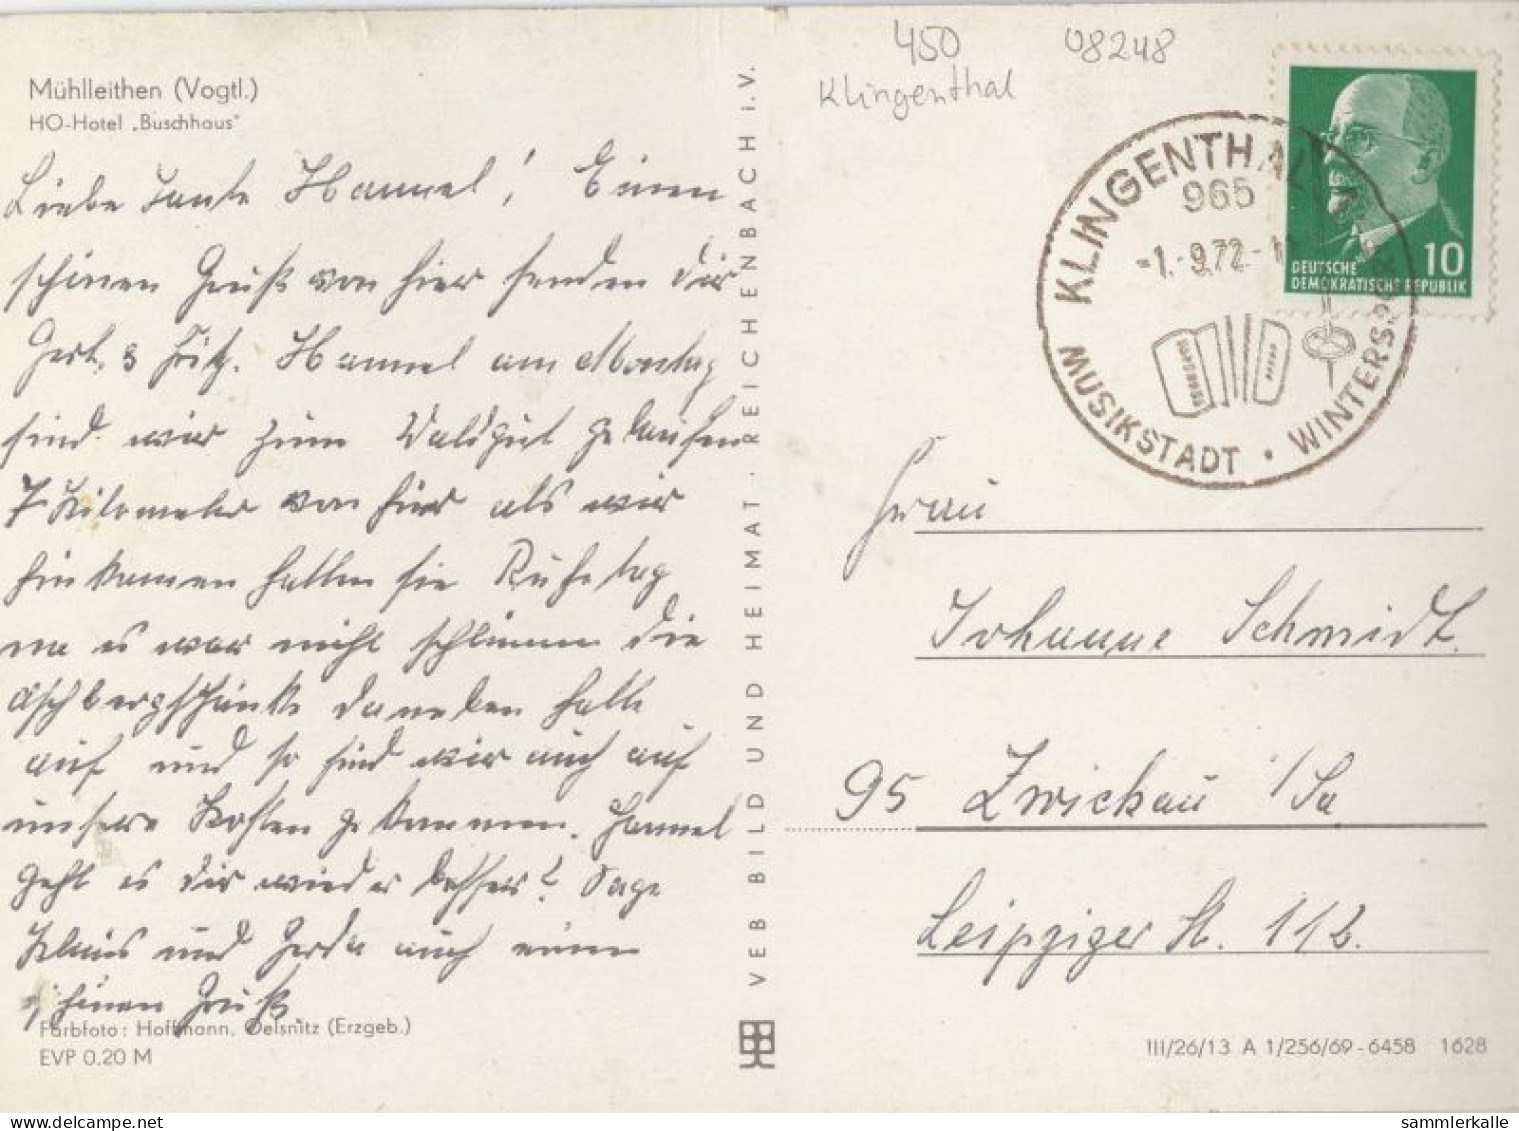 Mühlleithen (Vogtl.)
HO-Hotel "Buschhaus"
Liebe Tante Hannel! Einen
schönen Gruß von hier senden dir
Gert. & Fritz. Hannel am Montag
sind wir zum Waldgut gelaufen
7 Kilometer von hier als wir
hinkamen hatten sie Ruhetag
na es war nicht schlimm die
Aschbergschänke daneben hatte
auf und so sind wir auch auf
unsere Kosten gekommen. Hannel
geht es dir wieder besser? Sage
Klaus und Gerda auch einen
schönen Gruß.
Farbfoto: Hoffmann, Oelsnitz (Erzgeb.)
EVP 0,20 M
VEB BILD UND HEIMAT · REICHENBACH i. V.
450
08248
Klingenthal
KLINGENTHAL
965
-1.-9.72.-
MUSIKSTADT · WINTERSPORT
10
DEUTSCHE
DEMOKRATISCHE REPUBLIK
Frau
Johanne Schmidt.
95 Zwickau i/Sa
Leipziger St. 112.
III/26/13 A 1/256/69-6458 1628
sammlerkalle